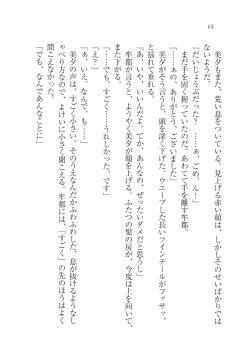 64
美夕もまた、荒い息をついている。見上げる赤い顔は、しかしそのせいばかりでは
ないようだ。
「だいじょうぶだった？……あ、ごめ、ん！」
まだ手を固く握っていたのだ。あわてて手を離す牟都。
「……あの、ありがとう、ございました」
美夕がそう言うと、頭を深く下げた。ウエーブした長いツインテールがファサッ、
と揺れて垂れる。
「あ、いや、いいんだよ。てか、あんなの、ぜったいダメだと思うし」
牟都が言うと、ようやく美夕が顔を上げる。ふたつの髪の房が、今度は上を向いて、
また下がる。
「……でも、すごく……うれしかった、です」
「え？」
「あ、いえ、なんで、も……」
美夕の声は、すごく小さい。そのうえなんだかふわふわした、息が抜けるようなし
ゃべり方なので、よけいに小さく聞こえる。牟都には、「すごく」の先のほうはよく
聞こえなかった。
「でも、なんであんなことに」